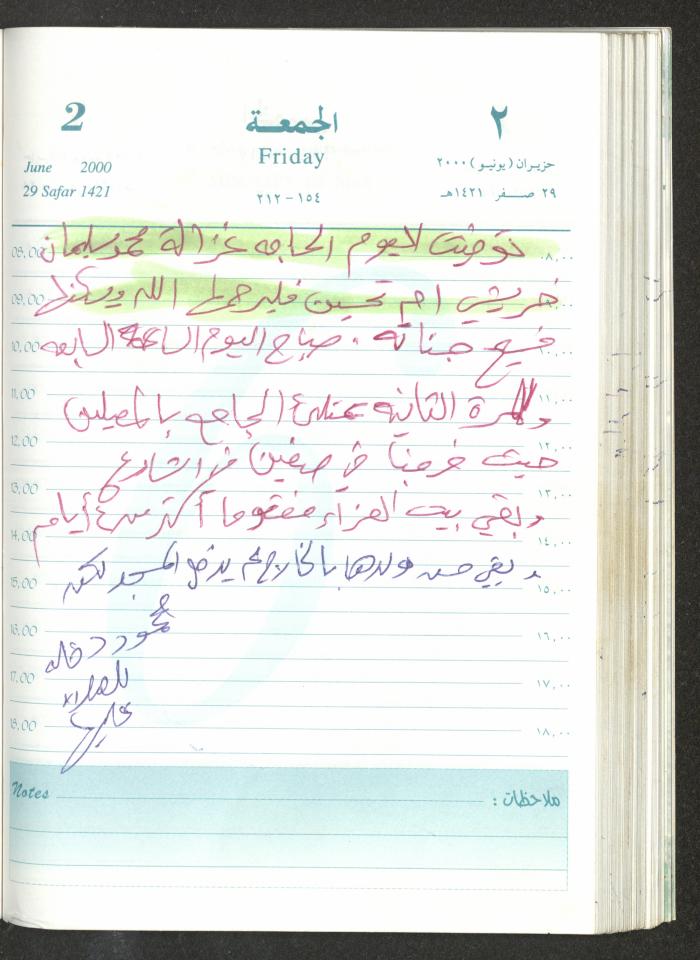 2 الجمعة ٢
Friday
June 2000 حزيران (يونيو) ٢٠٠٠
29 Safar 1421 ١٥٤ - ٢١٢ ٢٩ صفر ١٤٢١هـ
توفيت اليوم الحاجه غزالة محمد سليمان
08,00 ٠٨,٠٠
خريشي ام تحسين فليرحمها الله ويسكنها
09,00
فسيح جناته . صباح اليوم الساعة الرابعه
10,00
وللمرة الثانية يمتلئ الجامع بالمصلين
11,00 ١١,٠٠
12,00 ١٢,٠٠
حيث في صفين في الشارع
13,00 ١٣,٠٠
وبقي بيت العزاء مفتوحا أكثر من ٤ أيام
14,00 ١٤,٠٠
وبقي ولدها بالخارج لم يدخل المسجد لكن
15,00 ١٥,٠٠
محمود
16,00 ١٦,٠٠
17,00 ١٧,٠٠
18,00 ١٨,٠٠
Notes ملاحظات :